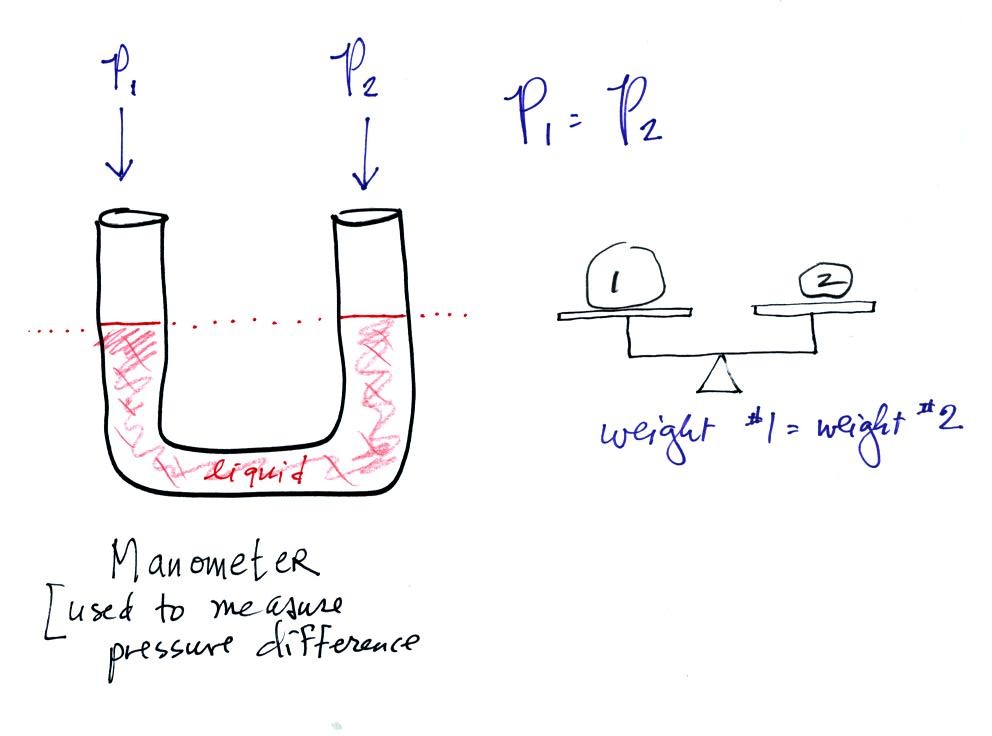 P1
P2
P1 = P2
1
2
weight #1 = weight #2
liquid
Manometer
[used to measure
pressure difference